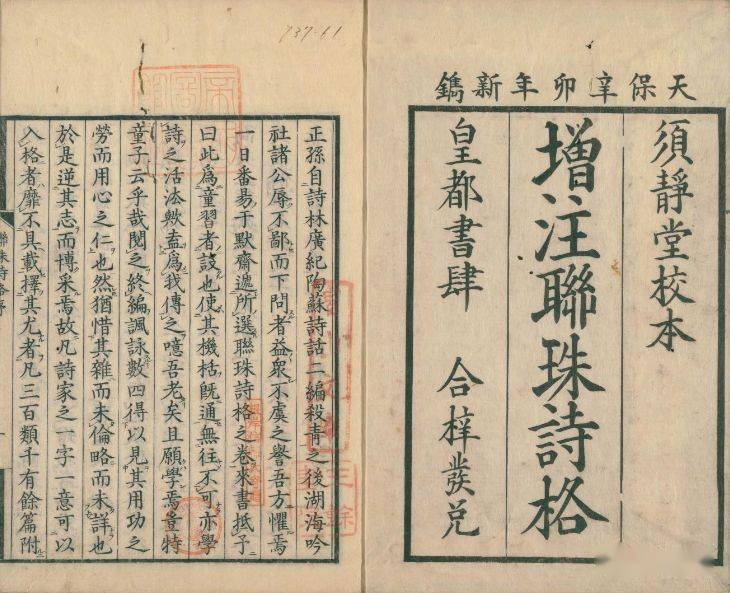 天保辛卯年新鐫
須靜堂校本
增注聯珠詩格
皇都書肆 合梓發兌
737-61
正孫自詩林廣紀陶蘇詩話二編殺青之後湖海吟
社諸公辱不鄙而下問者益衆不虞之譽吾方懼焉
一日番易于默齋遞所選聯珠詩格之卷來書抵予
曰此爲童習者設也使其機栝既通無往不可亦學
詩之活法歟盍爲我傳之噫吾老矣且願學焉豈特
童子云乎哉閱之終編諷詠數四得以見其用功之
勞而用心之仁也然猶惜其雜而未倫略而未詳也
於是逆其志而博采焉故凡詩家之一字一意可以
入格者靡不具載擇其尤者凡三百類千有餘篇附
聯珠詩格序